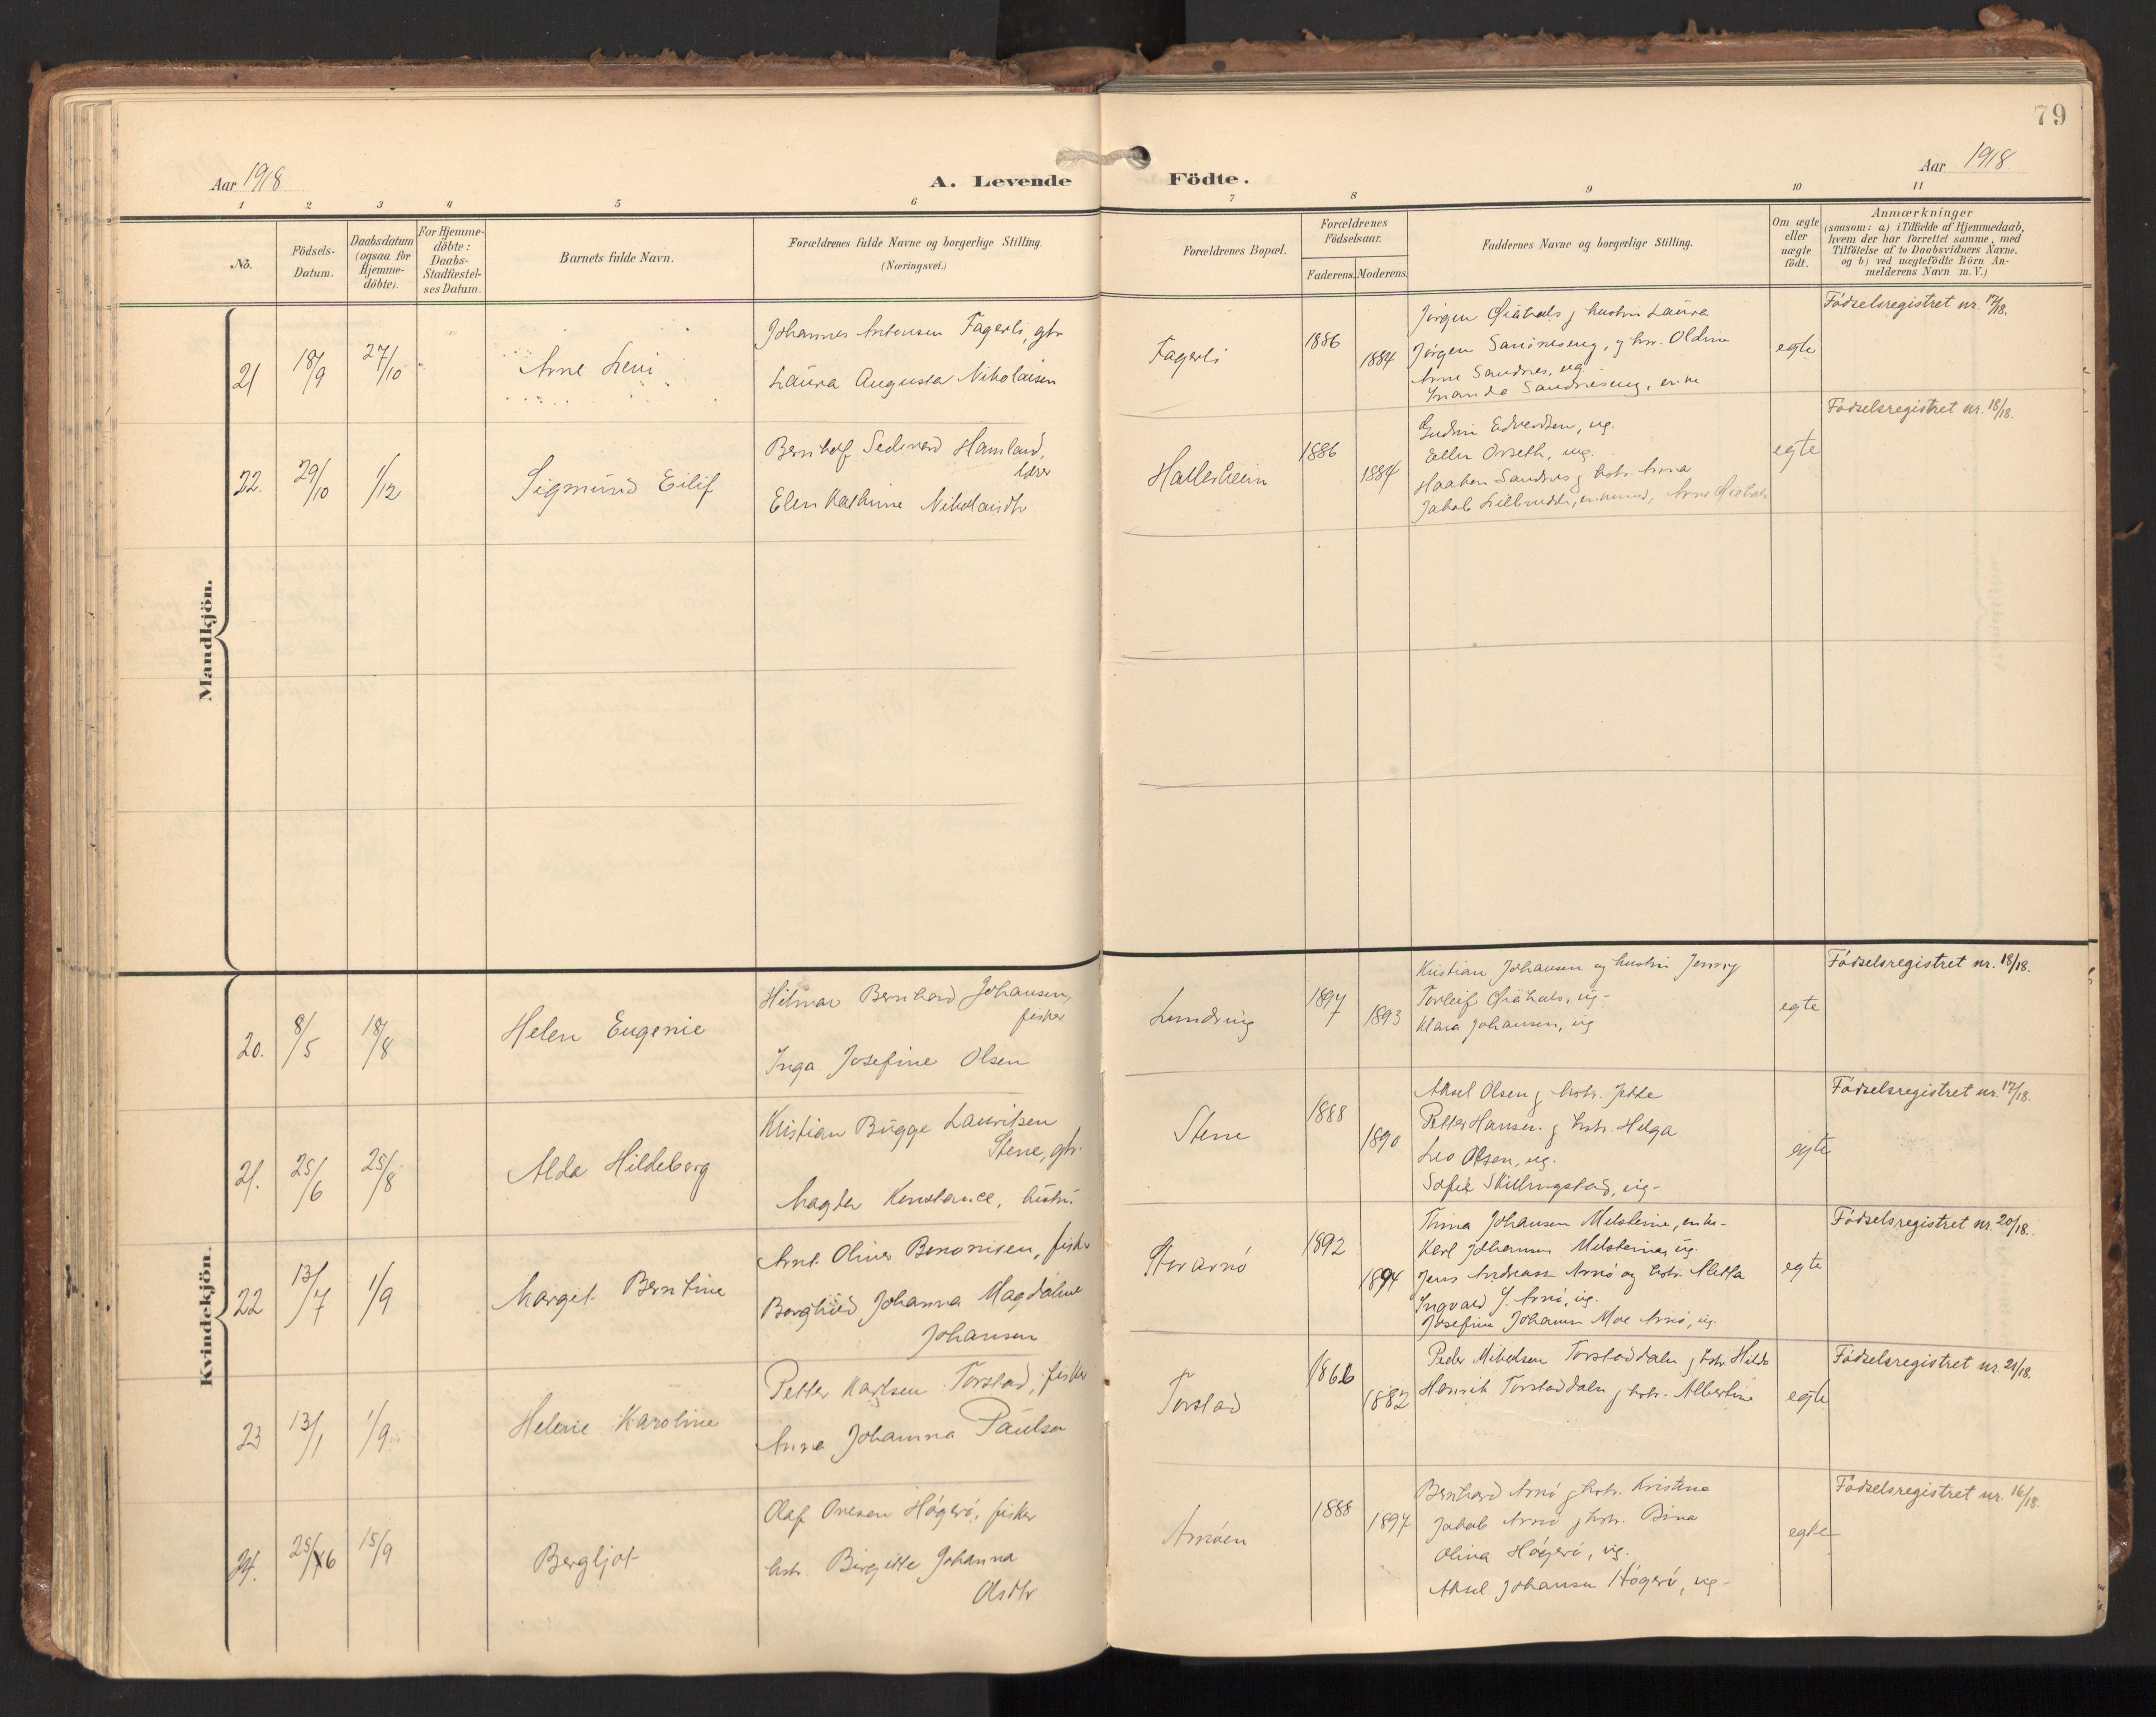 79
Aar 1918
A. Levende Födte.
Aar 1918
1 2 3 4 5 6 7 8 9 10 11
No.
Födsels-
Datum.
Daabsdatum
(ogsaa for
Hjemme-
döbte).
For Hjemme-
döbte:
Daabs-
Stadfæstel-
ses Datum.
Barnets fulde Navn.
Forældrenes fulde Navne og borgerlige Stilling.
(Næringsvei.)
Forældrenes Bopæl.
Forældrenes
Födselsaar.
Faderens. Moderens.
Faddernes Navne og borgerlige Stilling.
Om ægte
eller
uægte
födt.
Anmærkninger
(saasom: a) i Tilfælde af Hjemmedaab,
hvem der har forrettet samme, med
Tilföielse af to Daabsvidners Navne,
og b) ved uægtefödte Börn An-
melderens Navn m. V.)
Mandkjön.
21 18/9 27/10
Arne Levi
Johannes Antonsen Fagerli, gbr
Laura Augusta Nikolaisen
Fagerli
1886
1884
Jörgen
hustru Laura
Jörgen Sandneseng, g hr. Oldine
Arne Sandnes, ug.
Sandneseng, enke
egte
Födselsregistret nr. 17/18.
22. 29/10 1/12
Sigmund Eilif
Bernhof Sedivard Hamland,
lærer
Elen Kathrine Nikolaisdtr
Hallerheim
1886
1884
Gudrun Edvardsen, ug.
Ellen Orseth, ug.
Haaken Sandnes g hstr. Anna
Jakob
egte
Födselsregistret nr. 18/18.
Kvindekjön.
20. 8/5 18/8
Helen Eugenie
Hilmar Bernhard Johansen,
fisker
Inga Josefine Olsen
Lundring
1897
1893
Kristian Johansen og hustru Jenny
Torleif
ug-
Klara Johansen, ug
egte
Födselsregistret nr. 18/18.
21. 25/6 25/8
Alda Hildeborg
Kristian Bugge Lauritsen
Stene, gbr.
Magda Konstance, hustru.
Stene
1888
1890
Aksel Olsen g hstr. Jette
Petter Hansen g hstr. Helga
Leo Olsen, ug.
Sofie Skillingstad, ug-
egte
Födselsregistret nr. 17/18.
22 13/7 1/9
Margit Berntine
Arnt Oliver Benonisen, fisker
Borghild Johanna Magdalene
Johansen
Storarnö
1892
1894
Trina Johansen Melsteine, enke-
Karl Johansen
ug.
Jens Andreassen Arnö og hstr. Metta
Ingvald J. Arnö, ug.
Josefine Johanne Moe Arnö, ug.
egte
Födselsregistret nr. 20/18.
23 13/1 1/9
Helene Karoline
Petter Karlsen Torstad, fisker
Anna Johanna Paulsen
Torstad
1866
1882
Peder Mikelsen Torstaddalen g hstr. Hilda
Henrik Torstaddalen g hstr. Albertine
egte
Födselsregistret nr. 21/18.
24. 25/6 15/9
Bergljot
Olaf Ovesen Högerö, fisker
hstr. Birgitte Johanna
Olsdtr
Arnöen
1888
1897
Bernhard Arnö g hstr. Kristine
Jakob Arnö g hstr. Dina
Olina Högerö, ug.
Aksel Johansen Högerö, ug-
egte
Födselsregistret nr. 16/18.